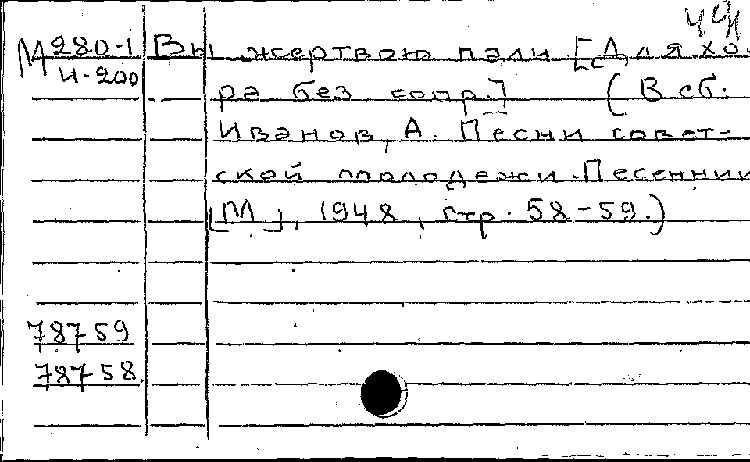 М 280-1
И-200
Вы жертвою пали [Для хо-
ра без сопр.] (В сб.
Иванов, А. Песни совет-
ской молодежи. Песенник
[М], 1948, стр. 58-59.)
78759
78758